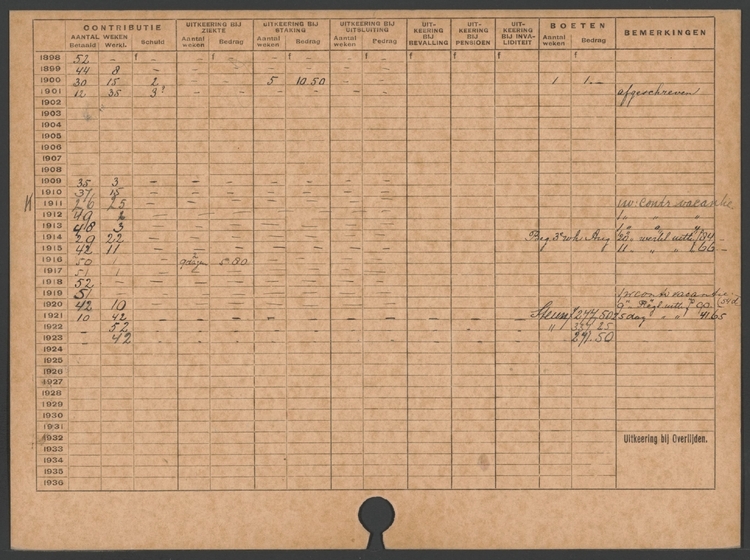 CONTRIBUTIE
UITKEERING BIJ ZIEKTE
UITKEERING BIJ STAKING
UITKEERING BIJ UITSLUITING
UIT- KEERING BIJ BEVALLING
UIT- KEERING BIJ PENSIOEN
UIT- KEERING BIJ INVA- LIDITEIT
BOETEN
BEMERKINGEN
AANTAL WEKEN
Betaald Werkl. Schuld
Aantal weken Bedrag
Aantal weken Bedrag
Aantal weken Bedrag
Aantal weken Bedrag
1898 52 – f – – f – – f – – f – f f f f
1899 44 8 – – – – – – –
1900 30 15 2 – – 5 10.50 – – 1 1.–
1901 12 35 3 – – – – – – afgeschreven
1902
1903
1904
1905
1906
1907
1908
1909 35 3 – – – – – – –
1910 37 15 – – – – – – –
1911 26 25 – – – – – – – 1w. contr vacantie
1912 49 2 – – – – – – – 1 " " "
1913 48 3 – – – – – – – 1 " " "
1914 29 22 – – – – – – – Beg 3e wk Aug
1915 42 11 – – – – – – – 11 " " "
1916 50 1 – 9 dagen 5.80 – – – –
1917 51 1 – – – – – – –
1918 52 – – – – – – – –
1919 51 – – – – – – – –
1920 42 10 – – – – – – –
1921 10 42 – – – – – – – Steun f 247.50 25 dag " " 41.65
1922 – 52 "
1923 – 42 291.50
1924
1925
1926
1927
1928
1929
1930
1931
1932 Uitkeering bij Overlijden.
1933
1934
1935
1936